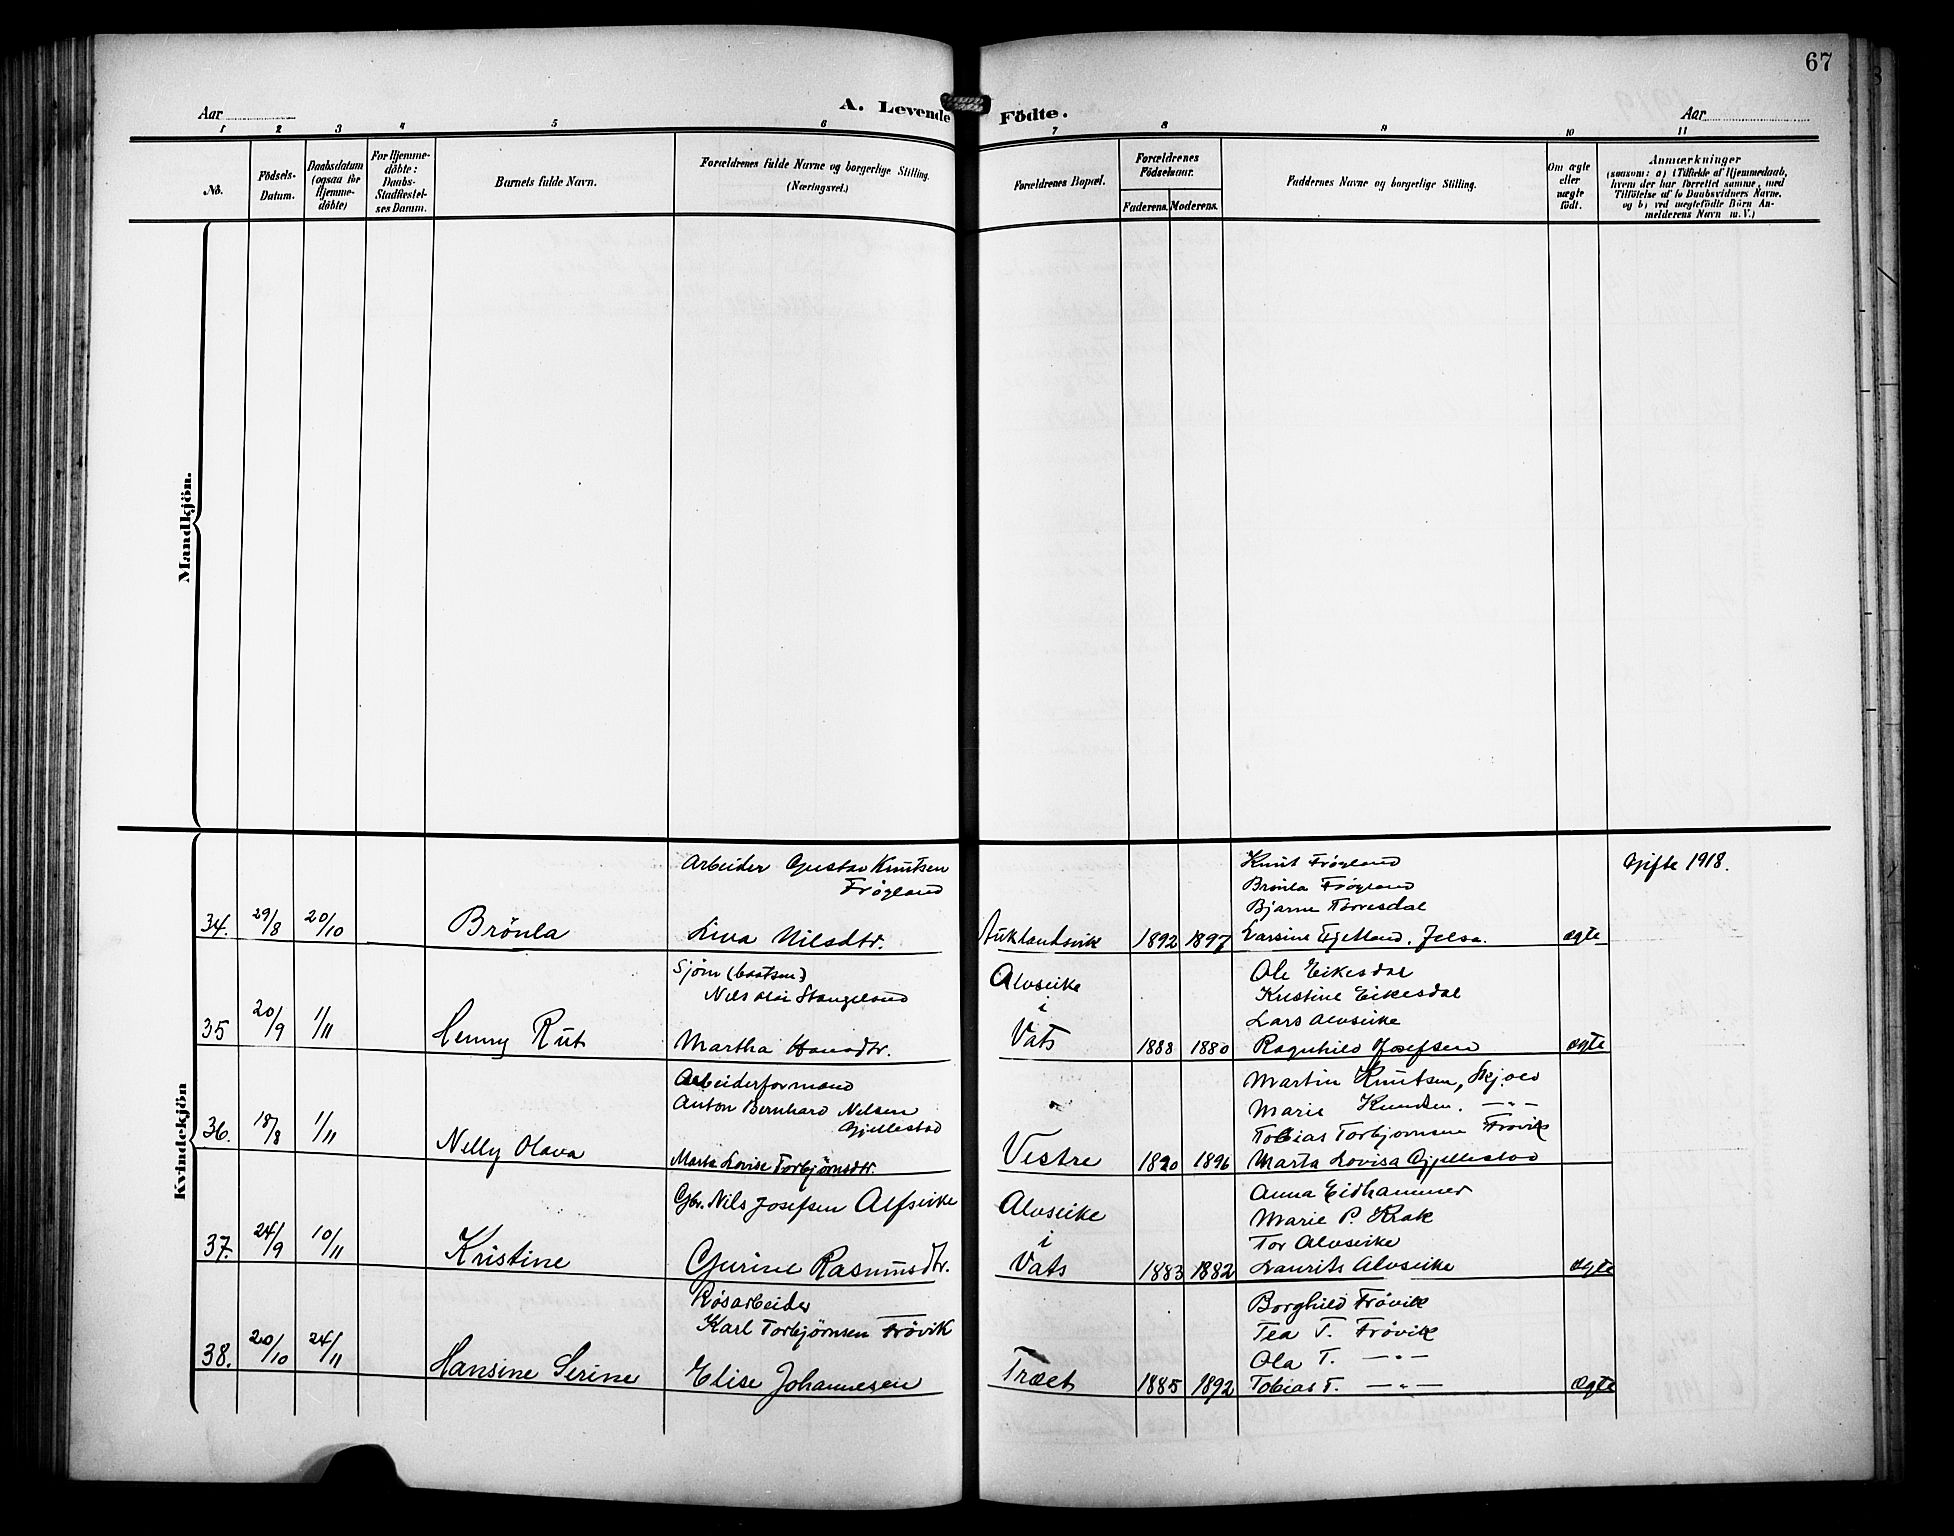 67
Aar
A. Levende Födte.
Aar
1 2 3 4 5 6 7 8 9 10 11
No.
Födsels-
Datum.
Daabsdatum
(ogsaa for
Hjemme-
döbte)
For Hjemme-
döbte:
Daabs-
Stadfæstel-
ses Datum.
Barnets fulde Navn.
Forældrenes fulde Navne og borgerlige Stilling.
(Næringsvei.)
Forældrenes Bopæl.
Forældrenes
Födselsaar.
Faderens.
Moderens.
Faddernes Navne og borgerlige Stilling.
Om ægte
eller
uægte
födt.
Anmærkninger
(saasom: a) i Tilfælde af Hjemmedaab,
hvem der har forrettet samme, med
Tilföielse af to Daabsvidners Navne,
og b) ved uægtefödte Börn An-
melderens Navn m. V.)
Mandkjön.
Kvindekjön
34. 29/8 20/10 Brönla
Arbeider Gustav Knutsen
Frøyland
Liva Nilsdtr.
Auklandsvik 1892 1897
Knut Frøyland
Brönla Frøyland
Bjarne Torvesdal
Larsine Fjetland. Jelsa.
ægte
Gifte 1918.
35 20/9 1/11 Henny Rut
Sjöm (baatsm)
Nils Olai Stangeland
Martha Hansdtr.
Alvseike
i
Vats 1888 1880
Ole Eikesdal
Kristine Eikesdal
Lars Alvseike
Ragnhild Josefsen
ægte
36. 18/8 1/11 Nelly Olava
Arbeiderformand
Anton Bernhard Nelsen
Gjellestad
Marta Lovise Torbjørnsdtr.
Vestre 1890 1896
Martin Knutsen, Skjold
Marie Knudsen. —"—
Tobias Torbjørnsen Frøvik
Marta Lovisa Gjellestad
37. 24/9 10/11 Kristine
Gbr. Nils Josefsen Alfseike
Gurine Rasmusdtr.
Alvseike
i
Vats 1883 1882
Anna Eidhammer
Marie P. Krak
Tor Alvseike
Laurits Alvseike
ægte
38. 20/10 24/11 Hansine Serine
Røsarbeider
Karl Torbjørnsen Frövik
Elise Johannesen
Træet 1885 1892
Borghild Frövik
Tea T. Frövik
Ola T. —"—
Tobias T. —"—
ægte